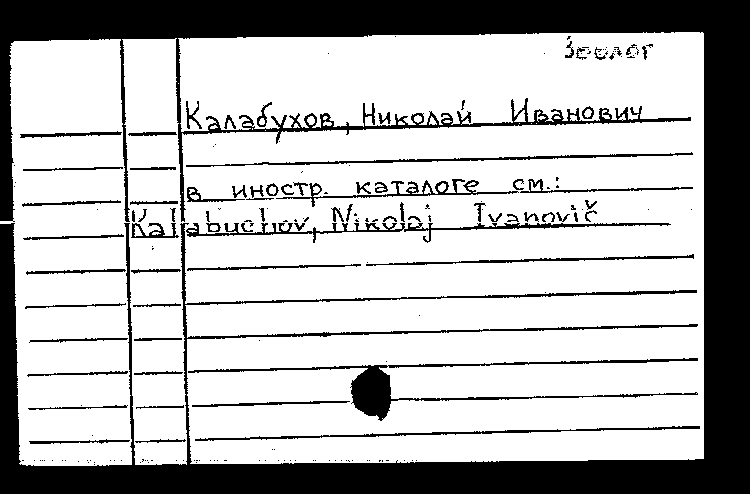 Зоолог
Калабухов, Николай Иванович
в иностр. каталоге см.:
Kalabuchov, Nikolaj Ivanovič